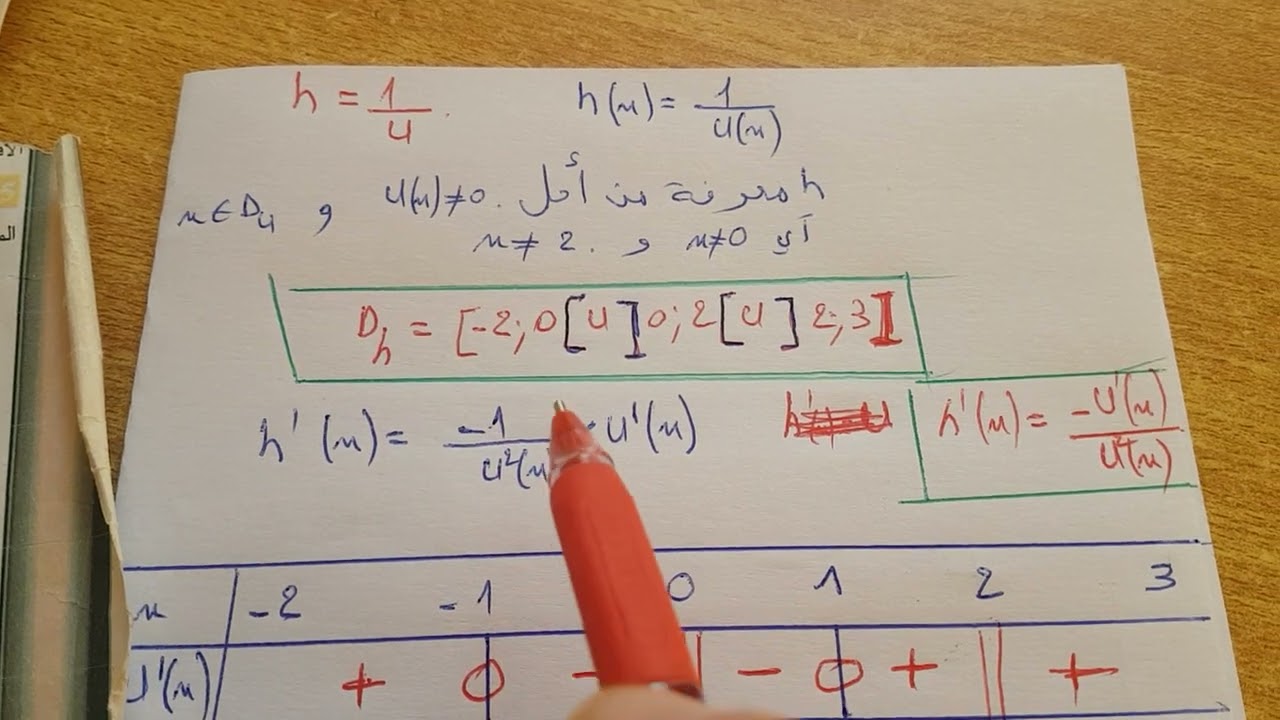 h = 1/u . h(x) = 1/u(x)
h معرفة من أجل u(x) ≠ 0 . و x ∈ Du
أي x ≠ 0 و x ≠ 2 .
Dh = [-2; 0[ U ]0; 2[ U ]2; 3]
h'(x) = -1/u²(x) · u'(x)
h'(x) = -u'(x)/u²(x)
x -2 -1 0 1 2 3
u'(x) + 0 - | - 0 + || +